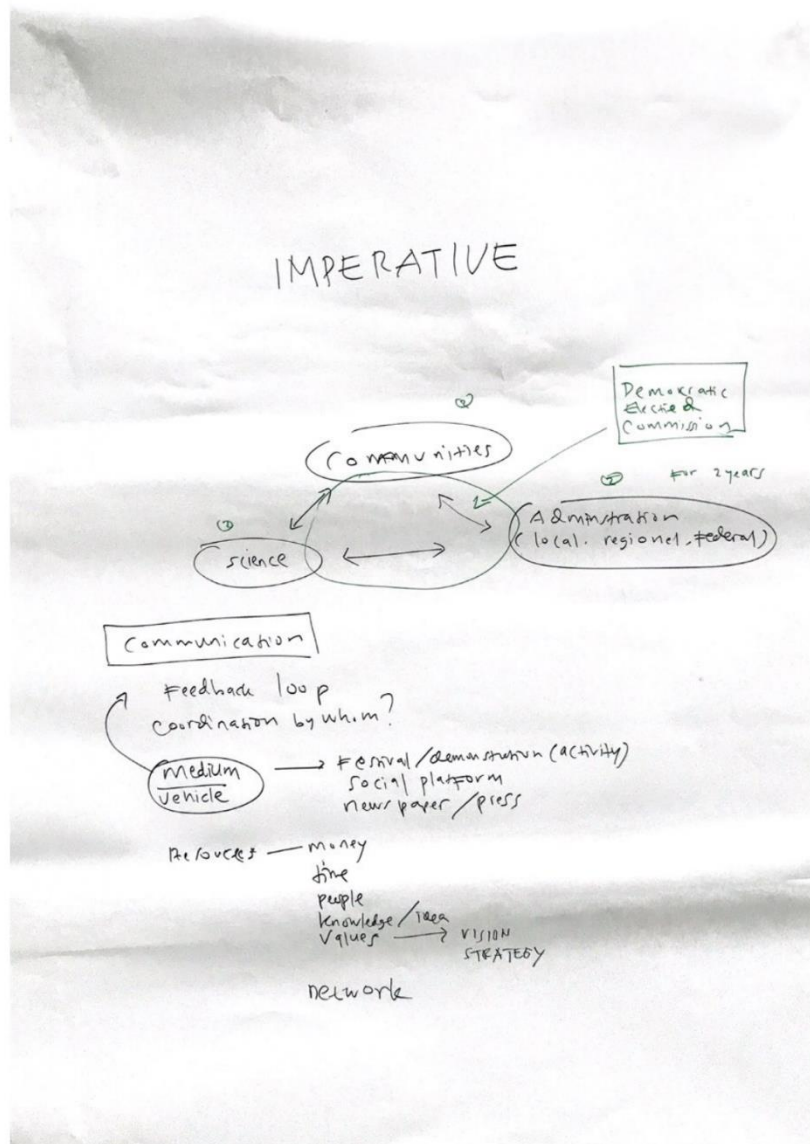 IMPERATIVE
Demokratic
Elected
Commission
For 2 years
Communities
Adminstration
(local. regionel. Federal)
science
Communication
Feedback loop
coordination by whom?
Medium
vehicle
Festival/demonstration (activity)
social platform
newspaper/press
Resources — money
time
people
knowledge/idea
values → VISION
STRATEGY
network